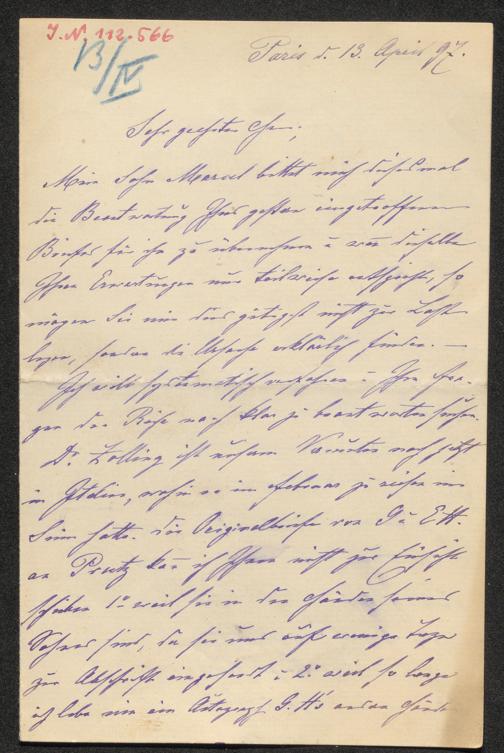 J.N. 112.566
13/IV
Paris d. 13. April 97.
Sehr geehrter Herr,
Mein Sohn Marcel bittet mich dieses mal
die Beantwortung Ihres gestern eingetroffenen
Briefes für ihn zu übernehmen u wen dieselbe
Ihren Erwartungen nur teilweise entspricht, so
mögen Sie mir dies gütigst nicht zur Last
legen, sondern die Ursache erklärlich finden. —
Ich will systematisch verfahren u Ihre Fra-
gen der Reihe nach klar zu beantworten suchen.
Dr. Zolling ist unseres Vermutens noch jetzt
in Italien, wohin er im Februar zu reisen im
Sinne hatte. Die Originalbriefe von G u E H.
an Prutz kan ich Ihnen nicht zur Einsicht
schicken 1o weil sie in den Händen seines
Sohnes sind, der sie uns auf wenige Tage
zur Abschrift eingesandt u 2o weil so lange
ich lebe nie ein Autograph G. H's andre Hände